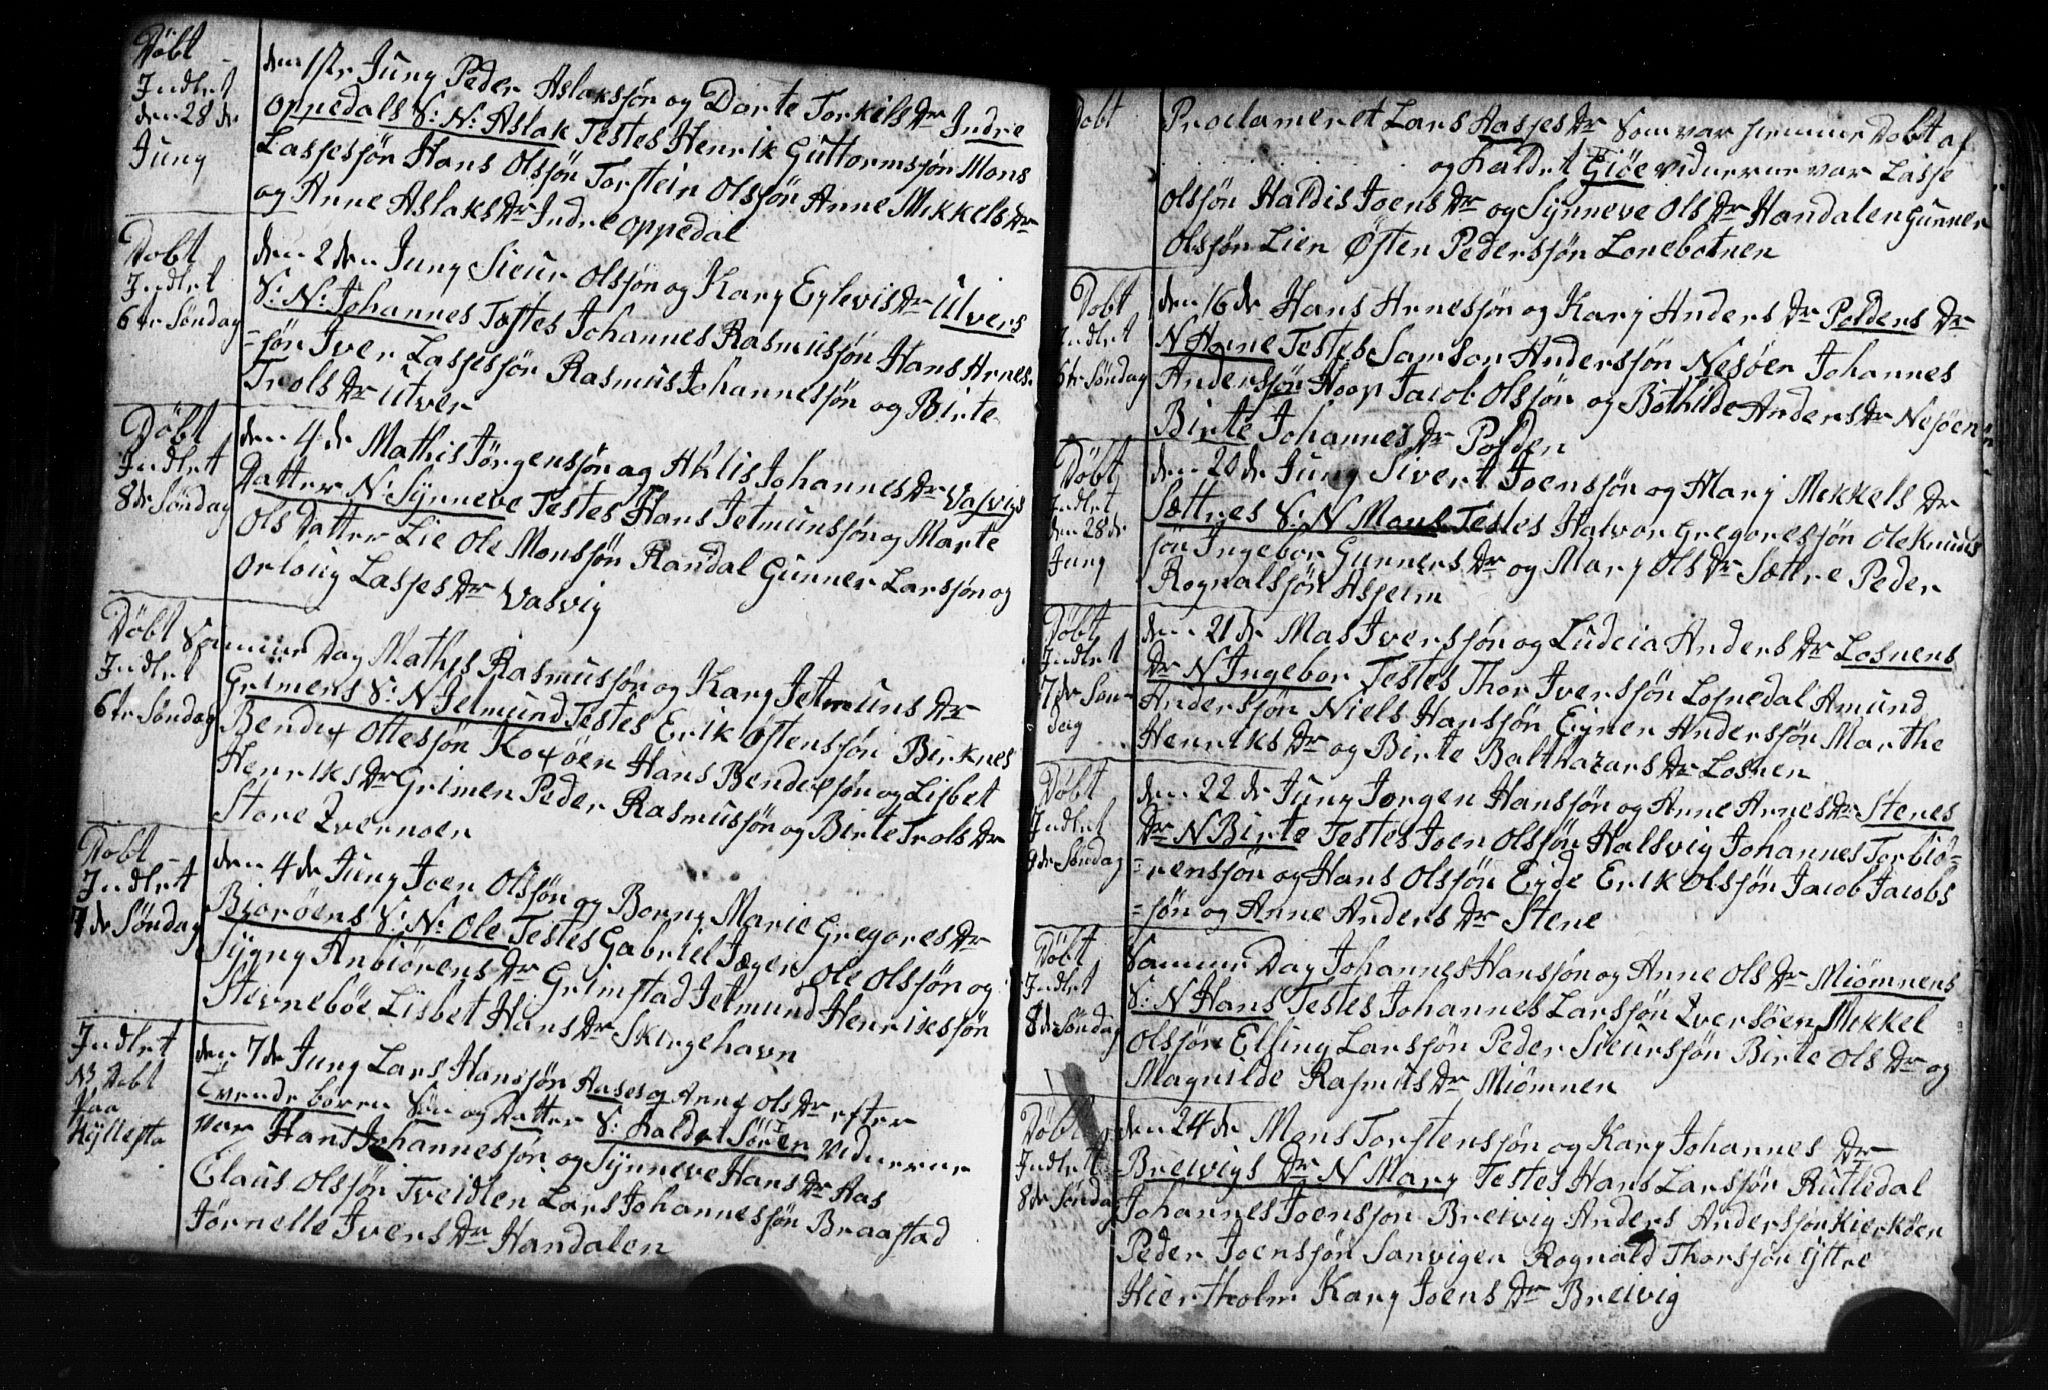 Døbt
Indlet
den 28 de
Juny
den 1ste Juny Peder Aslaksøn og Dorte Torkils Dr Indre
Oppedals S: N: Aslak Testes Henrik Guttormsøn Mons
Lassesøn Hans Olssøn Torstein Olssøn Anne Mikkels Dr
og Anne Aslaks Dr Indre Oppedal
Døbt
Indlet
6te Søndag
den 2den Juny Sieur Olssøn og Kary Eylevis Dr Utvers
S: N: Johannes Testes Johannes Rasmussøn Hans Arnes-
=søn Iver Lassesøn Rasmus Johannessøn og Birte
Trols Dr Utver
Døbt
Indlet
8de Søndag
den 4de Mathis Jørgensøn og Ahlis Johannes Dr Vasvigs
Datter N: Synneve Testes Hans Jetmunsøn og Marte
Ols Datter Lie Ole Monssøn Randal Gunner Larssøn og
Orloug Lasses Dr Vasvig
Døbt
Indlet
6te Søndag
Samme Dag Mathes Rasmussøn og Kary Jetmuns Dr
Grimens S: N Jetmund Testes Erik Østensøn Birknes
Bendix Ottesøn Koxøen Hans Bendixsøn og Lisbet
Henriks Dr Grimen Peder Rasmussøn og Birte Trols Dr
Store Qvernøen
Døbt
Indlet
7de Søndag
den 4de Juny Joen Olssøn og Borny Marie Gregores Dr
Biorøens S: N: Ole Testes Gabriel Jæger Ole Olssøn og
Sygny Anbiørens Dr Grimstad Jetmund Henrikssøn
Steinebøe Lisbet Hans Dr Skiregehavn
Indlet
NB Døbt
Paa
Hyllesta
den 7de Juny Lars Hanssøn Aases og Anne Ols Dr efter
Tvende børen Søn og Datter S: Kaldet Søren Viduerne
var Hans Johannessøn og Synneve Hans Dr Aas
Claus Olssøn Tveidlen Lars Johannessøn Braastad
Jørnelle Ivers Dr Handalen
Døbt
Proclameret Lars Aasses Dr Som var hiemme Døbt af
og Kaldet Giøe viduerne var Lasse
Olssøn Haldis Joens Dr og Synneve Ols Dr Handalen Gunner
Olssøn Lien Østen Pederssøn Lonebotnen
Døbt
Indlet
6te Søndag
den 16de Hans Arnessøn og Kary Anders Dr Polders Dr
N Anne Testes Samson Anderssøn Nesøen Johannes
Anderssøn Hoop Jacob Olssøn og Bothilde Anders Dr Nesøen
Birte Johannes Dr Polden
Døbt
Indlet
den 28de
Juny
den 20de Juny Sivert Joenssøn og Mary Mekkels Dr
Sættres S: N Mons Testes Halvor Gregoressøn Ole Knuds
søn Ingebor Gunners Dr og Mary Ols Dr Sættre Peder
Rognalsøn Asheim
Døbt
Indlet
7de Søn-
dag
den 21de Mas Iverssøn og Ludcia Anders Dr Losnens
Dr N Ingebor Testes Thor Iverssøn Losnedal Amund
Anderssøn Niels Hanssøn Eyner Anderssøn Marthe
Henriks Dr og Birte Balthazars Dr Losnen
Døbt
Indlet
9de Søndag
den 22de Juny Jørgen Hanssøn og Anne Arnes Dr Stenes
Dr N Birte Testes Joen Olssøn Halsvig Johannes Torbiø-
=rensøn og Hans Olssøn Eyde Erik Olssøn Jacob Jacobs
=søn og Anne Anders Dr Stene
Døbt
Indlet
8de Søndag
Samme Dag Johannes Hanssøn og Anne Ols Dr Miømnens
S: N Hans Testes Johannes Larssøn Qversøen Mekkel
Olssøn Elling Larssøn Peder Sieurssøn Birte Ols Dr og
Magnilde Rasmus Dr Miømnen
Døbt
Indlet
8de Søndag
den 24de Mons Torstensøn og Kary Johannes Dr
Breivigs Dr N Mary Testes Hans Larssøn Rutledal
Johannes Joenssøn Breivig Anders Anderssøn Kierkøen
Peder Joenssøn Sanvigen Rognald Thorssøn Yttre
Hiertholm Kary Joens Dr Breivig